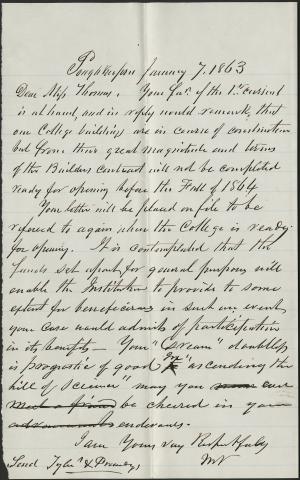 Poughkeepsie January 7, 1863
Dear Miss Thomas. Your fav. of the 1st current
is at hand, and in reply would remark, that
our College buildings are in course of construction
but from their great magnitude and terms
of the Builders contract will not be completed
ready for opening before the Fall of 1864
Your letter will be placed on file to be
refered to again when the College is ready
for opening. It is contemplated that the
funds set apart for general purposes will
enable the Institution to provide to some
extent for beneficiaries in such an event
your case would admit of participation
in its benefits – Your "dream" doubtless
is prognostic of good for "ascending the
hill of Science" may you
be cheered in your
endeavors.
I am Yours very Respectfully
MV
Send Tyler's &